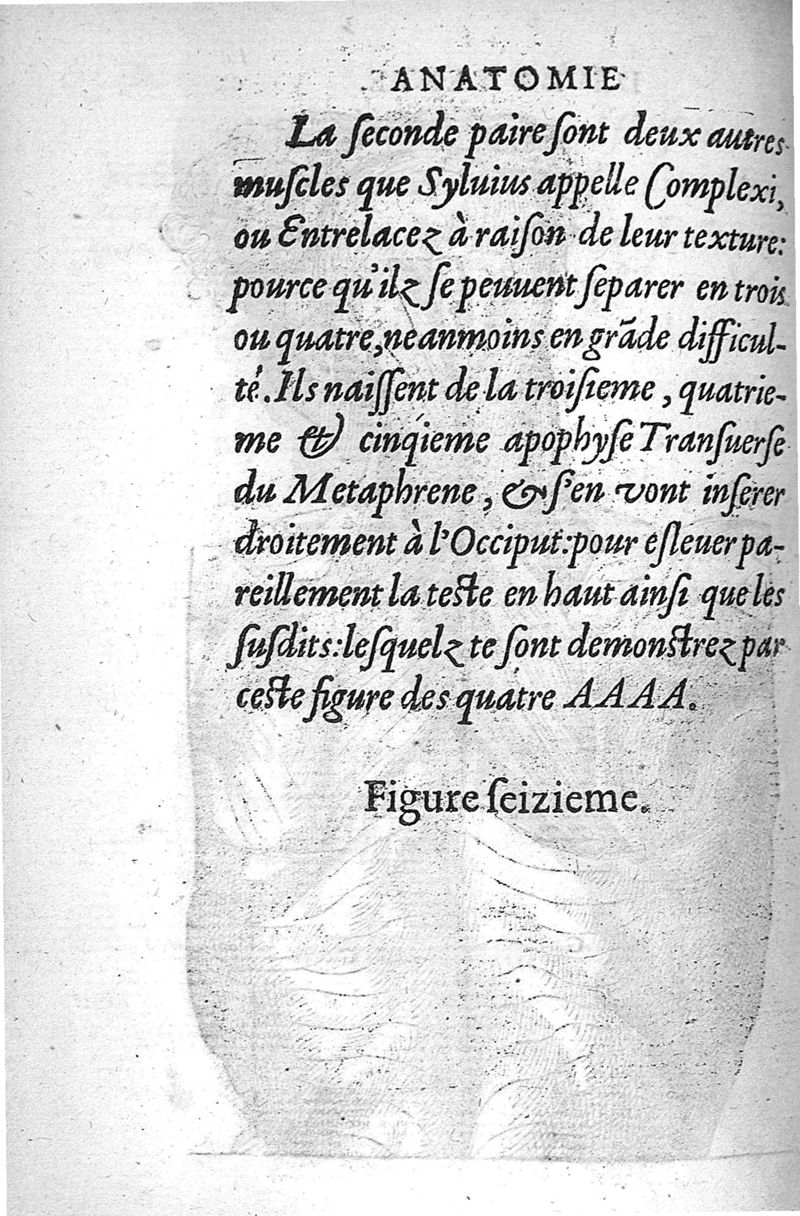 ANATOMIE
La ſeconde paire ſont deux autres
muſcles que Syluius appelle Complexi,
ou Entrelacez à raiſon de leur texture:
pource qu'ilz ſe peuuent ſeparer en trois
ou quatre, neanmoins en grāde difficul-
té. Ils naiſſent de la troiſieme, quatrie-
me & cinqieme apophyſe Tranſuerſe
du Metaphrene, & ſ'en vont inſerer
droitement à l'Occiput: pour eſleuer pa-
reillement la teſte en haut ainſi que les
ſuſdits: leſquelz te ſont demonſtrez par
ceſte figure des quatre AAAA.
Figure ſeizieme.